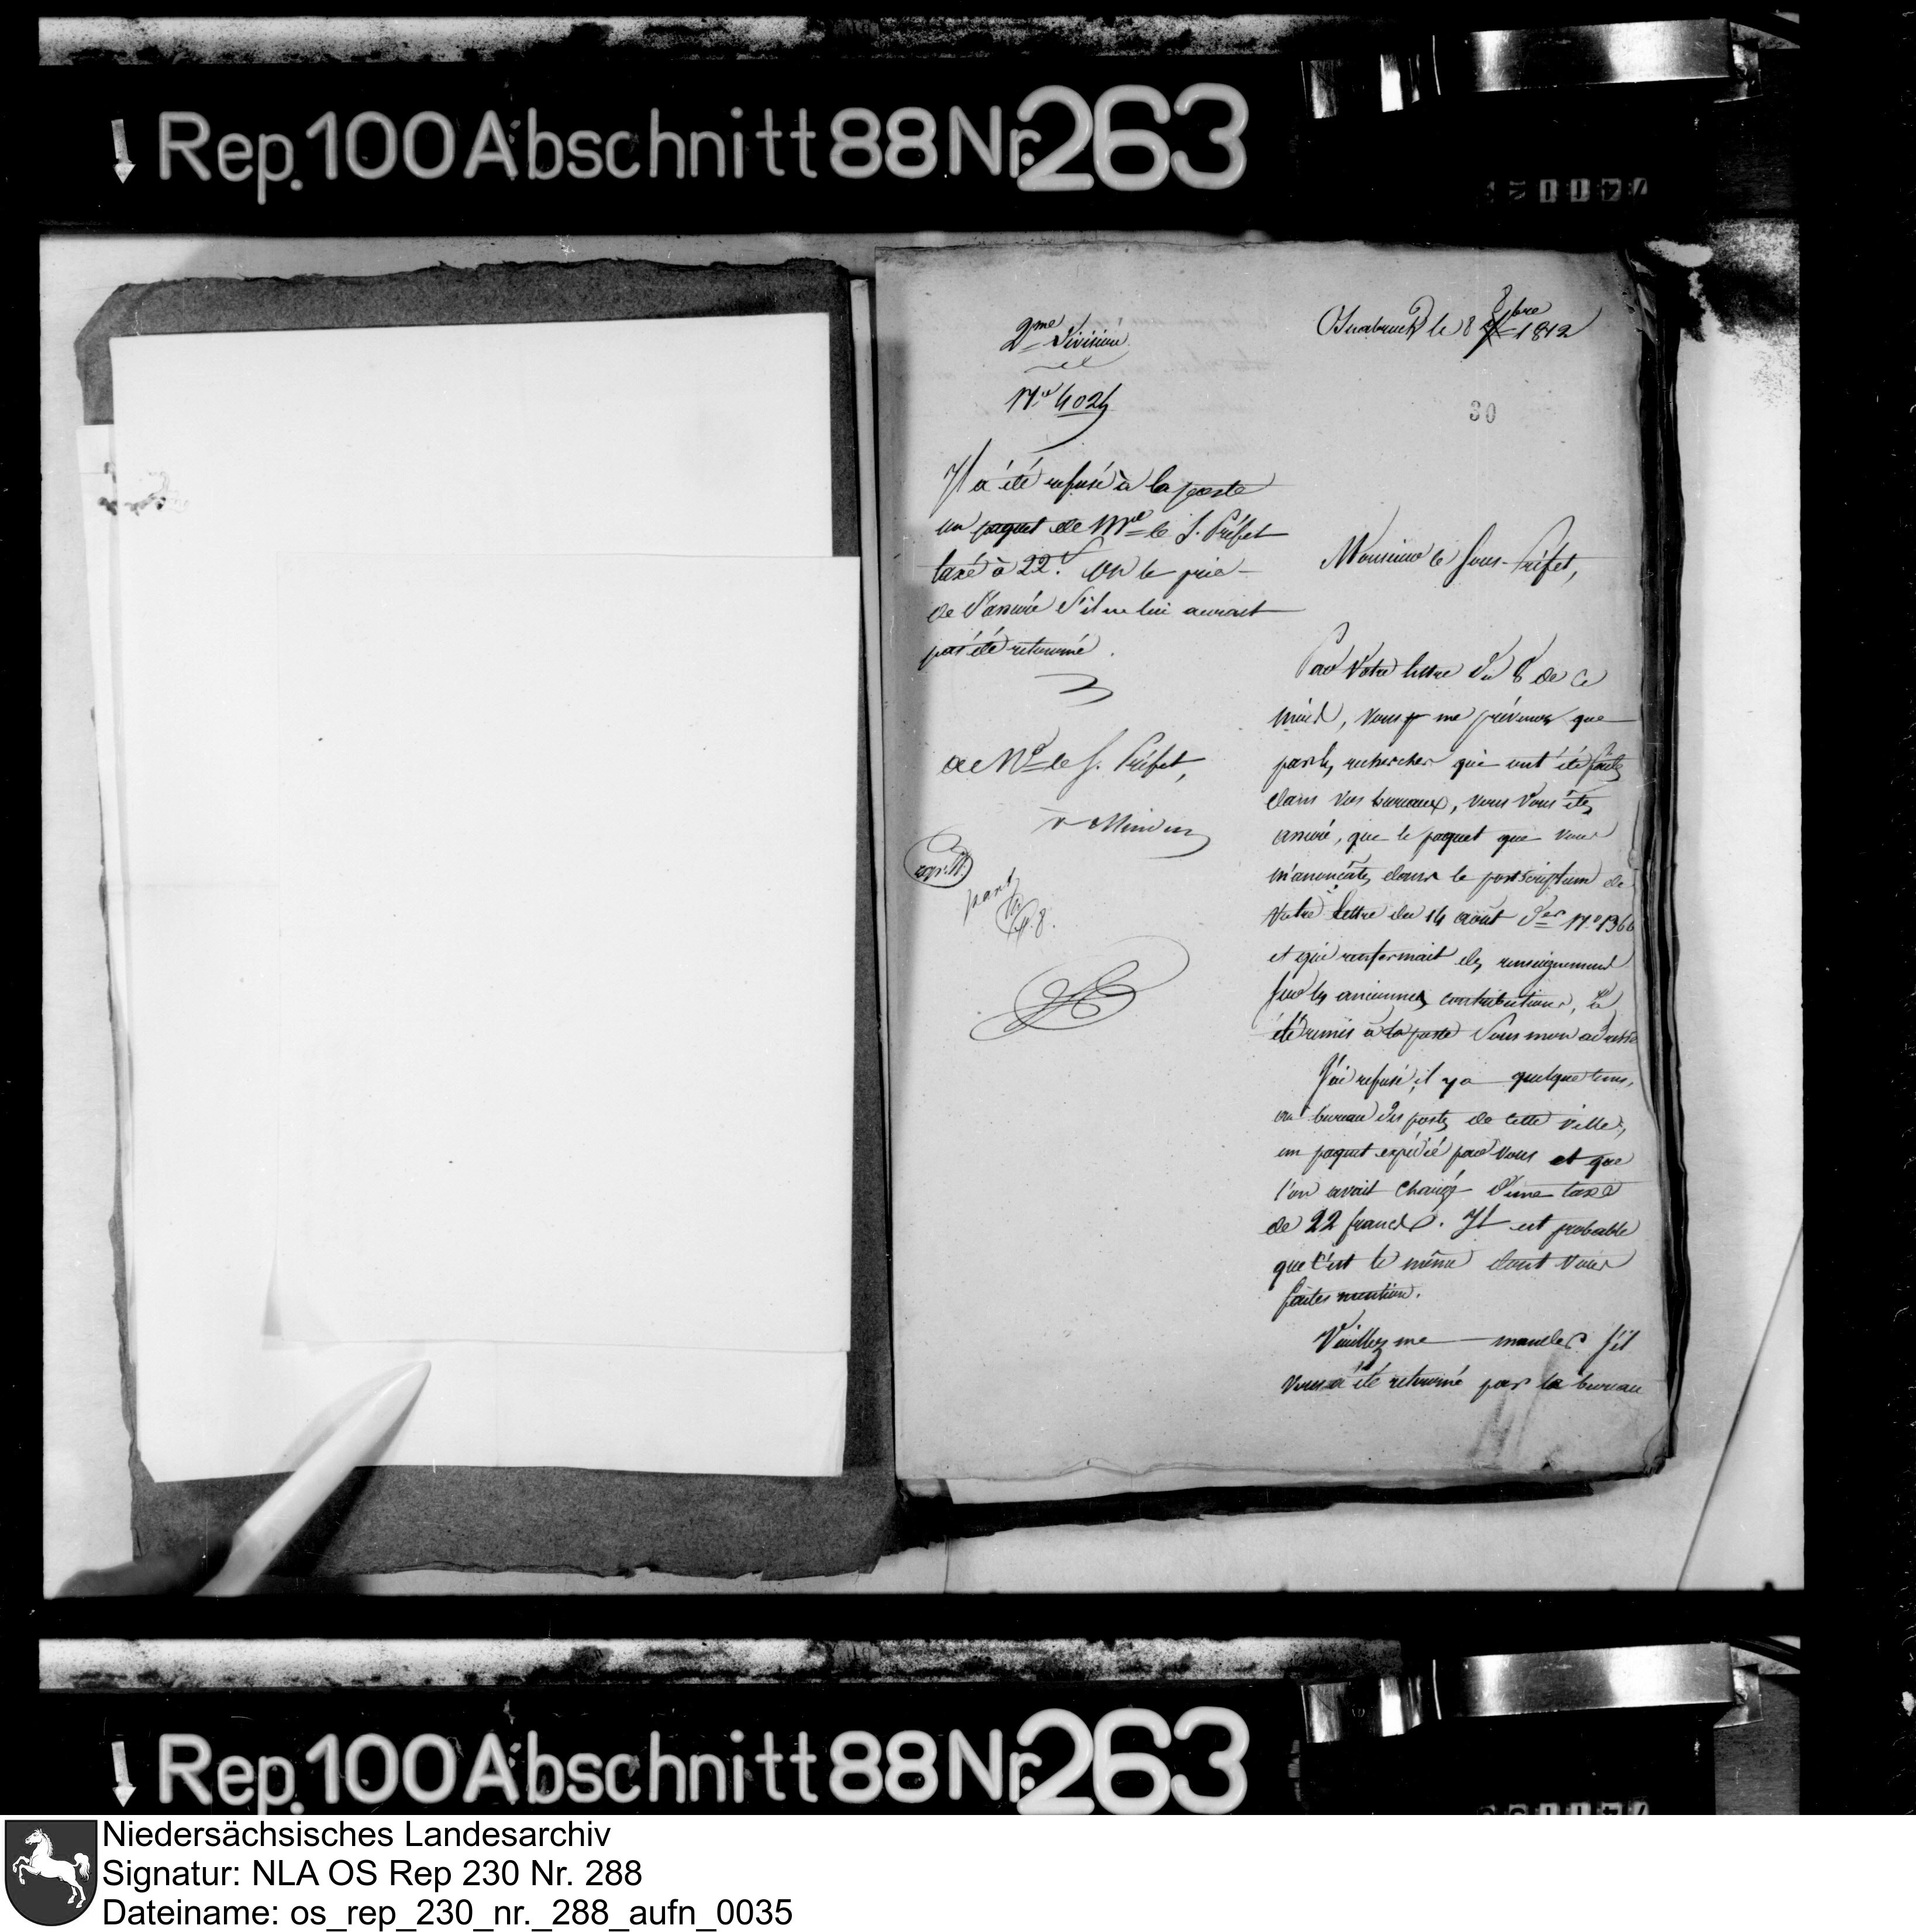 Rep. 100 Abschnitt 88 Nr. 263
2me Division
No 4024
Il a été refusé à la poste
un paquet de Mr le S. Préfet
taxé à 22 f. On le prie
de s'assurer s'il ne lui aurait
pas été retourné.
à Mr le S. Préfet,
à Minden
Osnabruck le 8 8bre 1812
30
Monsieur le Sous-Préfet,
Par Votre lettre du 6 de ce
mois, vous me prévenez que
par les recherches qui ont été faites
dans vos bureaux, vous vous êtes
assuré, que le paquet que vous
m'anoncâtes dans le postscriptum de
Votre lettre du 14 août der No 1366
et qui renfermait des renseignemens
sur les anciennes contributions, a
été remis à la poste sous mon adresse
J'ai refusé, il y a quelque tems,
au bureau des postes de cette ville,
un paquet expédié par vous et que
l'on avait chargé d'une taxe
de 22 francs. Il est probable
que c'est le même dont vous
faites mention.
Veuillez me mander s'il
vous a été retourné par le bureau
Rep. 100 Abschnitt 88 Nr. 263
Niedersächsisches Landesarchiv
Signatur: NLA OS Rep 230 Nr. 288
Dateiname: os_rep_230_nr._288_aufn_0035